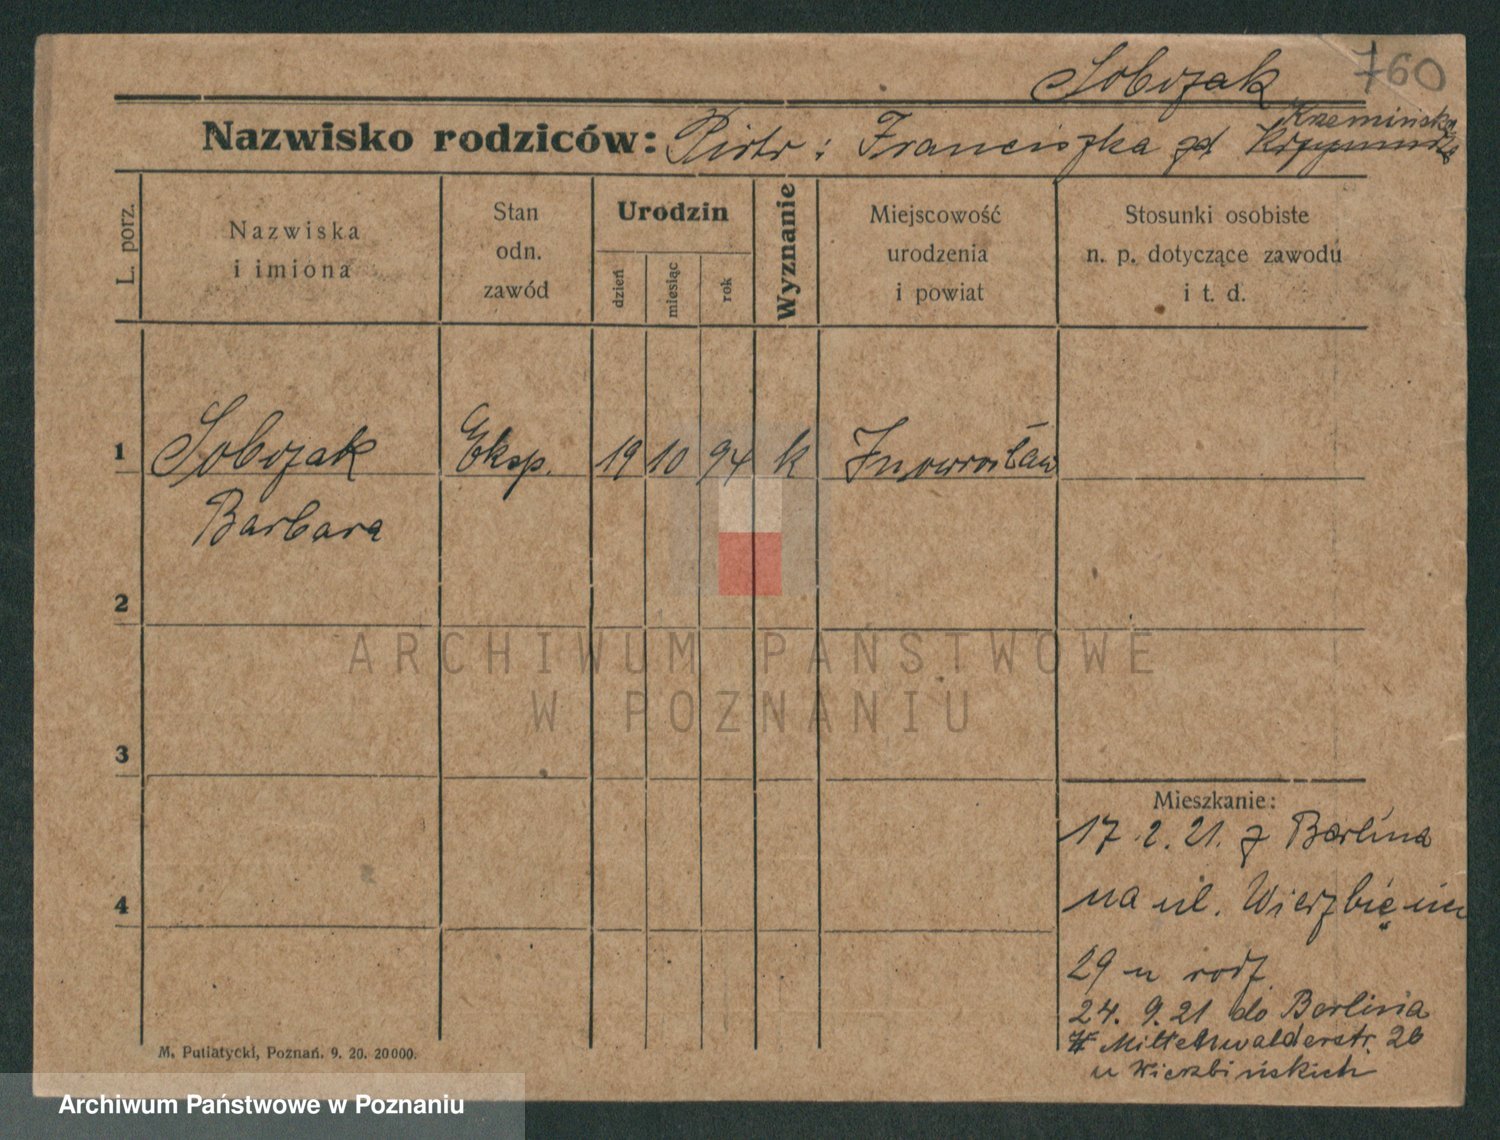 760
Sobczak
Nazwisko rodziców: Piotr i Franciszka zd Krzemińska
L. porz.
Nazwiska i imiona
Stan odn. zawód
Urodzin
dzień
miesiąc
rok
Wyznanie
Miejscowość urodzenia i powiat
Stosunki osobiste n. p. dotyczące zawodu i t. d.
1 Sobczak Eksp. 19 10 94 k Inowrocław
Barbara
2
3
4
ARCHIWUM PAŃSTWOWE
W POZNANIU
Mieszkanie:
17.2.21. z Berlina
na ul. Wierzbięcice
29 u rodz.
24. 9. 21 do Berlina
Mittenwalderstr. 26
u Wierzbińskich
M. Putiatycki, Poznań. 9. 20. 20000.
Archiwum Państwowe w Poznaniu